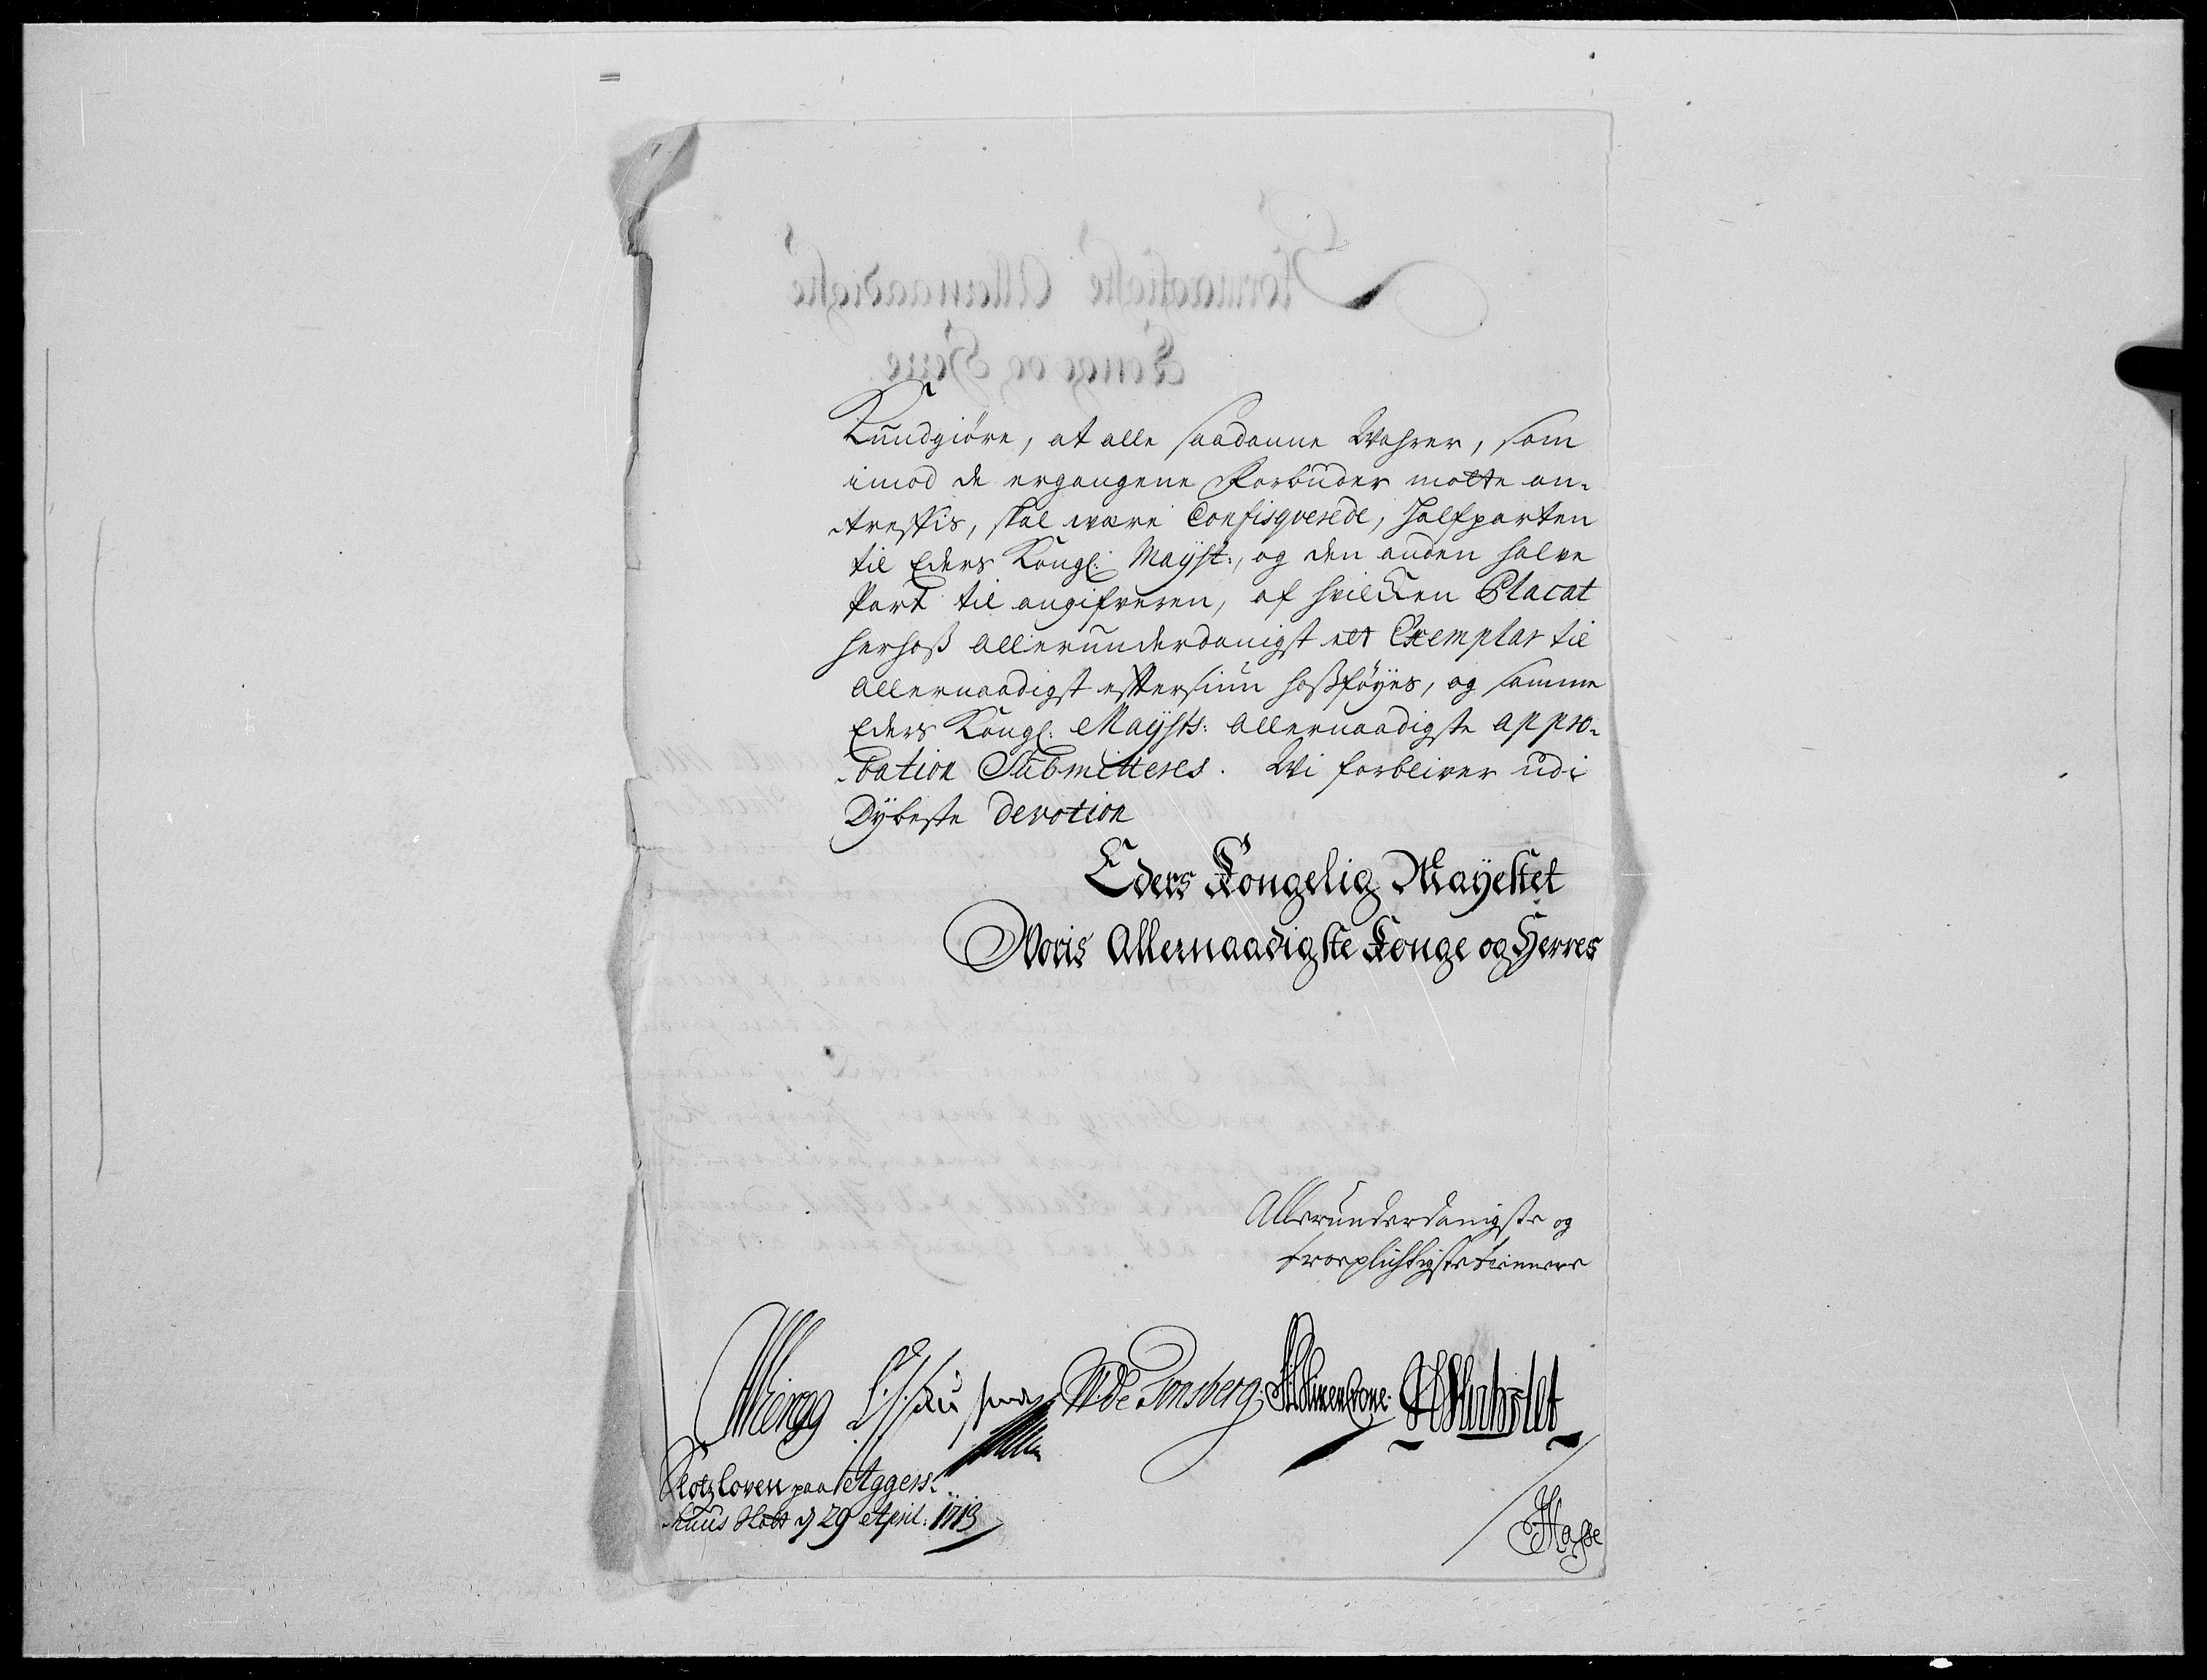 Kundgiöre, at alle saadanne Wahrer, som
imod de ergangene Forbuder motte an-
treffis, skal være Confisqverede, Halfparten
til Eders Kongl: Mayst:, og den anden halve
Part til angifveren, af hvilcken Placat
herhoß allerunderdanigst ett Exemplar til
allernaadigst eftersiun hoßföyes, og samme
Eders Kongl: Maysts: allernaadigste appro-
bation Submitteres. Wi forbliver udi
Dybeste devotion
Eders Kongelig Mayestet
Woris Allernaadigste Konge og Herres
Allerunderdanigste og
troeplichtigste tienere
FWibegg WdeTonsberg:
Slotzloven paa Aggers-
huus Slott d 29 April: 1713